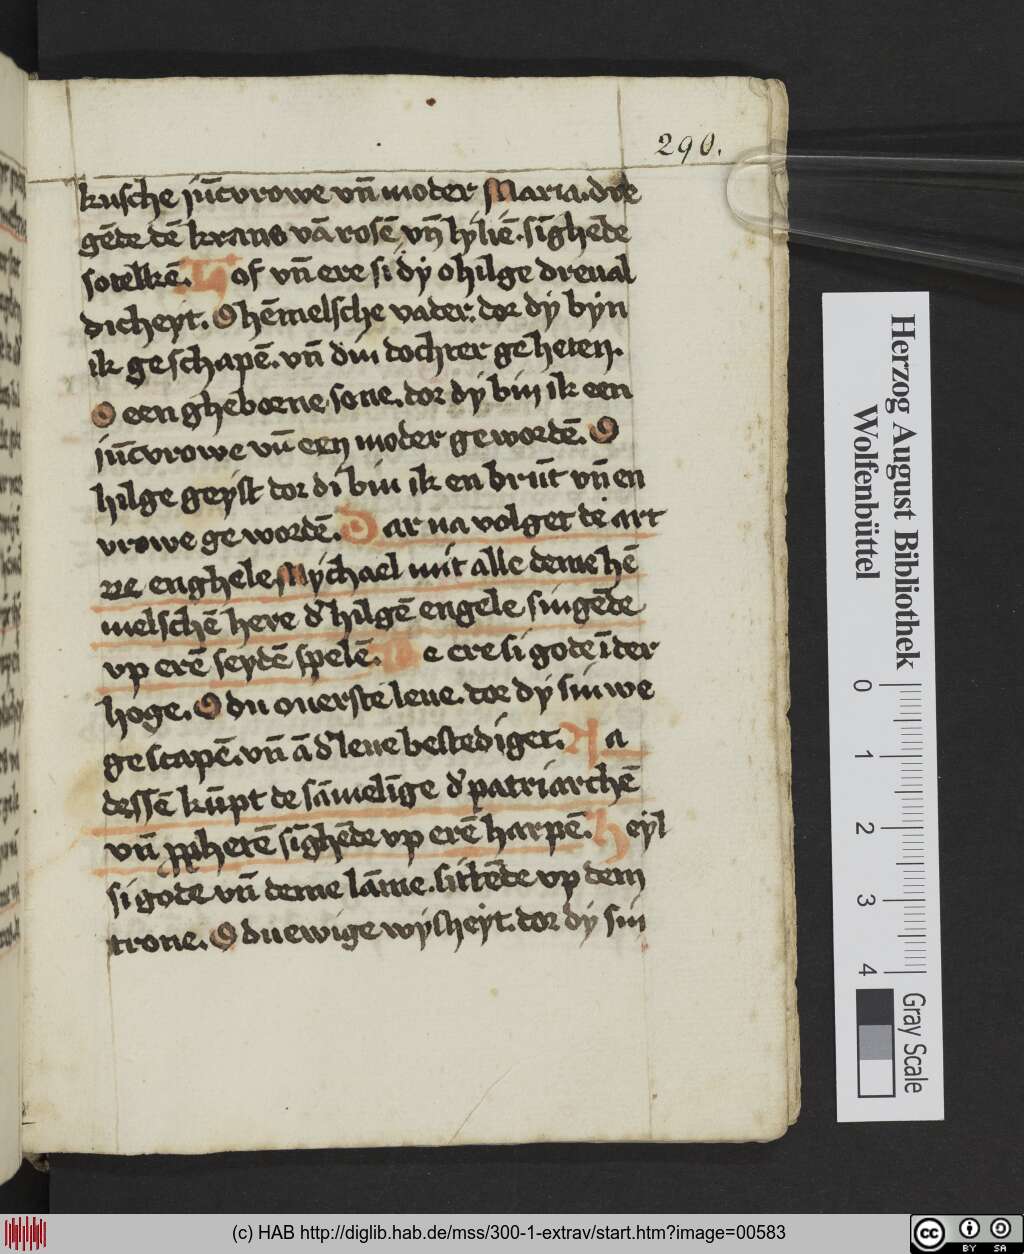 290.
kusche jūcvrowe vn̄ moder Maria. dre
gēde dē krans vā rosē vn̄ lyliē. sīghēde
sotelkē. Lof vn̄ ere si dy o hilge dreual
dicheyt. O hēmelsche vader. dor dy byn
ik geschapē. vn̄ din dochter geheten.
O een gheboene sone. dor dy bin ik een
jūcvrowe vn̄ een moder gewordē. O
hilge geyst dor di bin ik en brūt vn̄ en
vrowe gewordē. Dar na volget de art
ze enghele Mychael mit alle deme hē
melschē here d' hilgē engele singēde
vp erē seydē spelē. De ere si gode ī der
hoge. O du ouerste leue. dor dy sin we
gescapē. vn̄ ā d' leue bestediget. Na
dessē kūpt de sāmelīge d' patriarchē
vn̄ ꝓphetē sīghēde vp erē harpē. Heyl
si gode vn̄ deme lāme. sittēde vp dem
trone. O du ewige wysheyt. dor dy sin
Herzog August Bibliothek
Wolfenbüttel
0 1 2 3 4
Gray Scale
(c) HAB http://diglib.hab.de/mss/300-1-extrav/start.htm?image=00583
cc BY SA